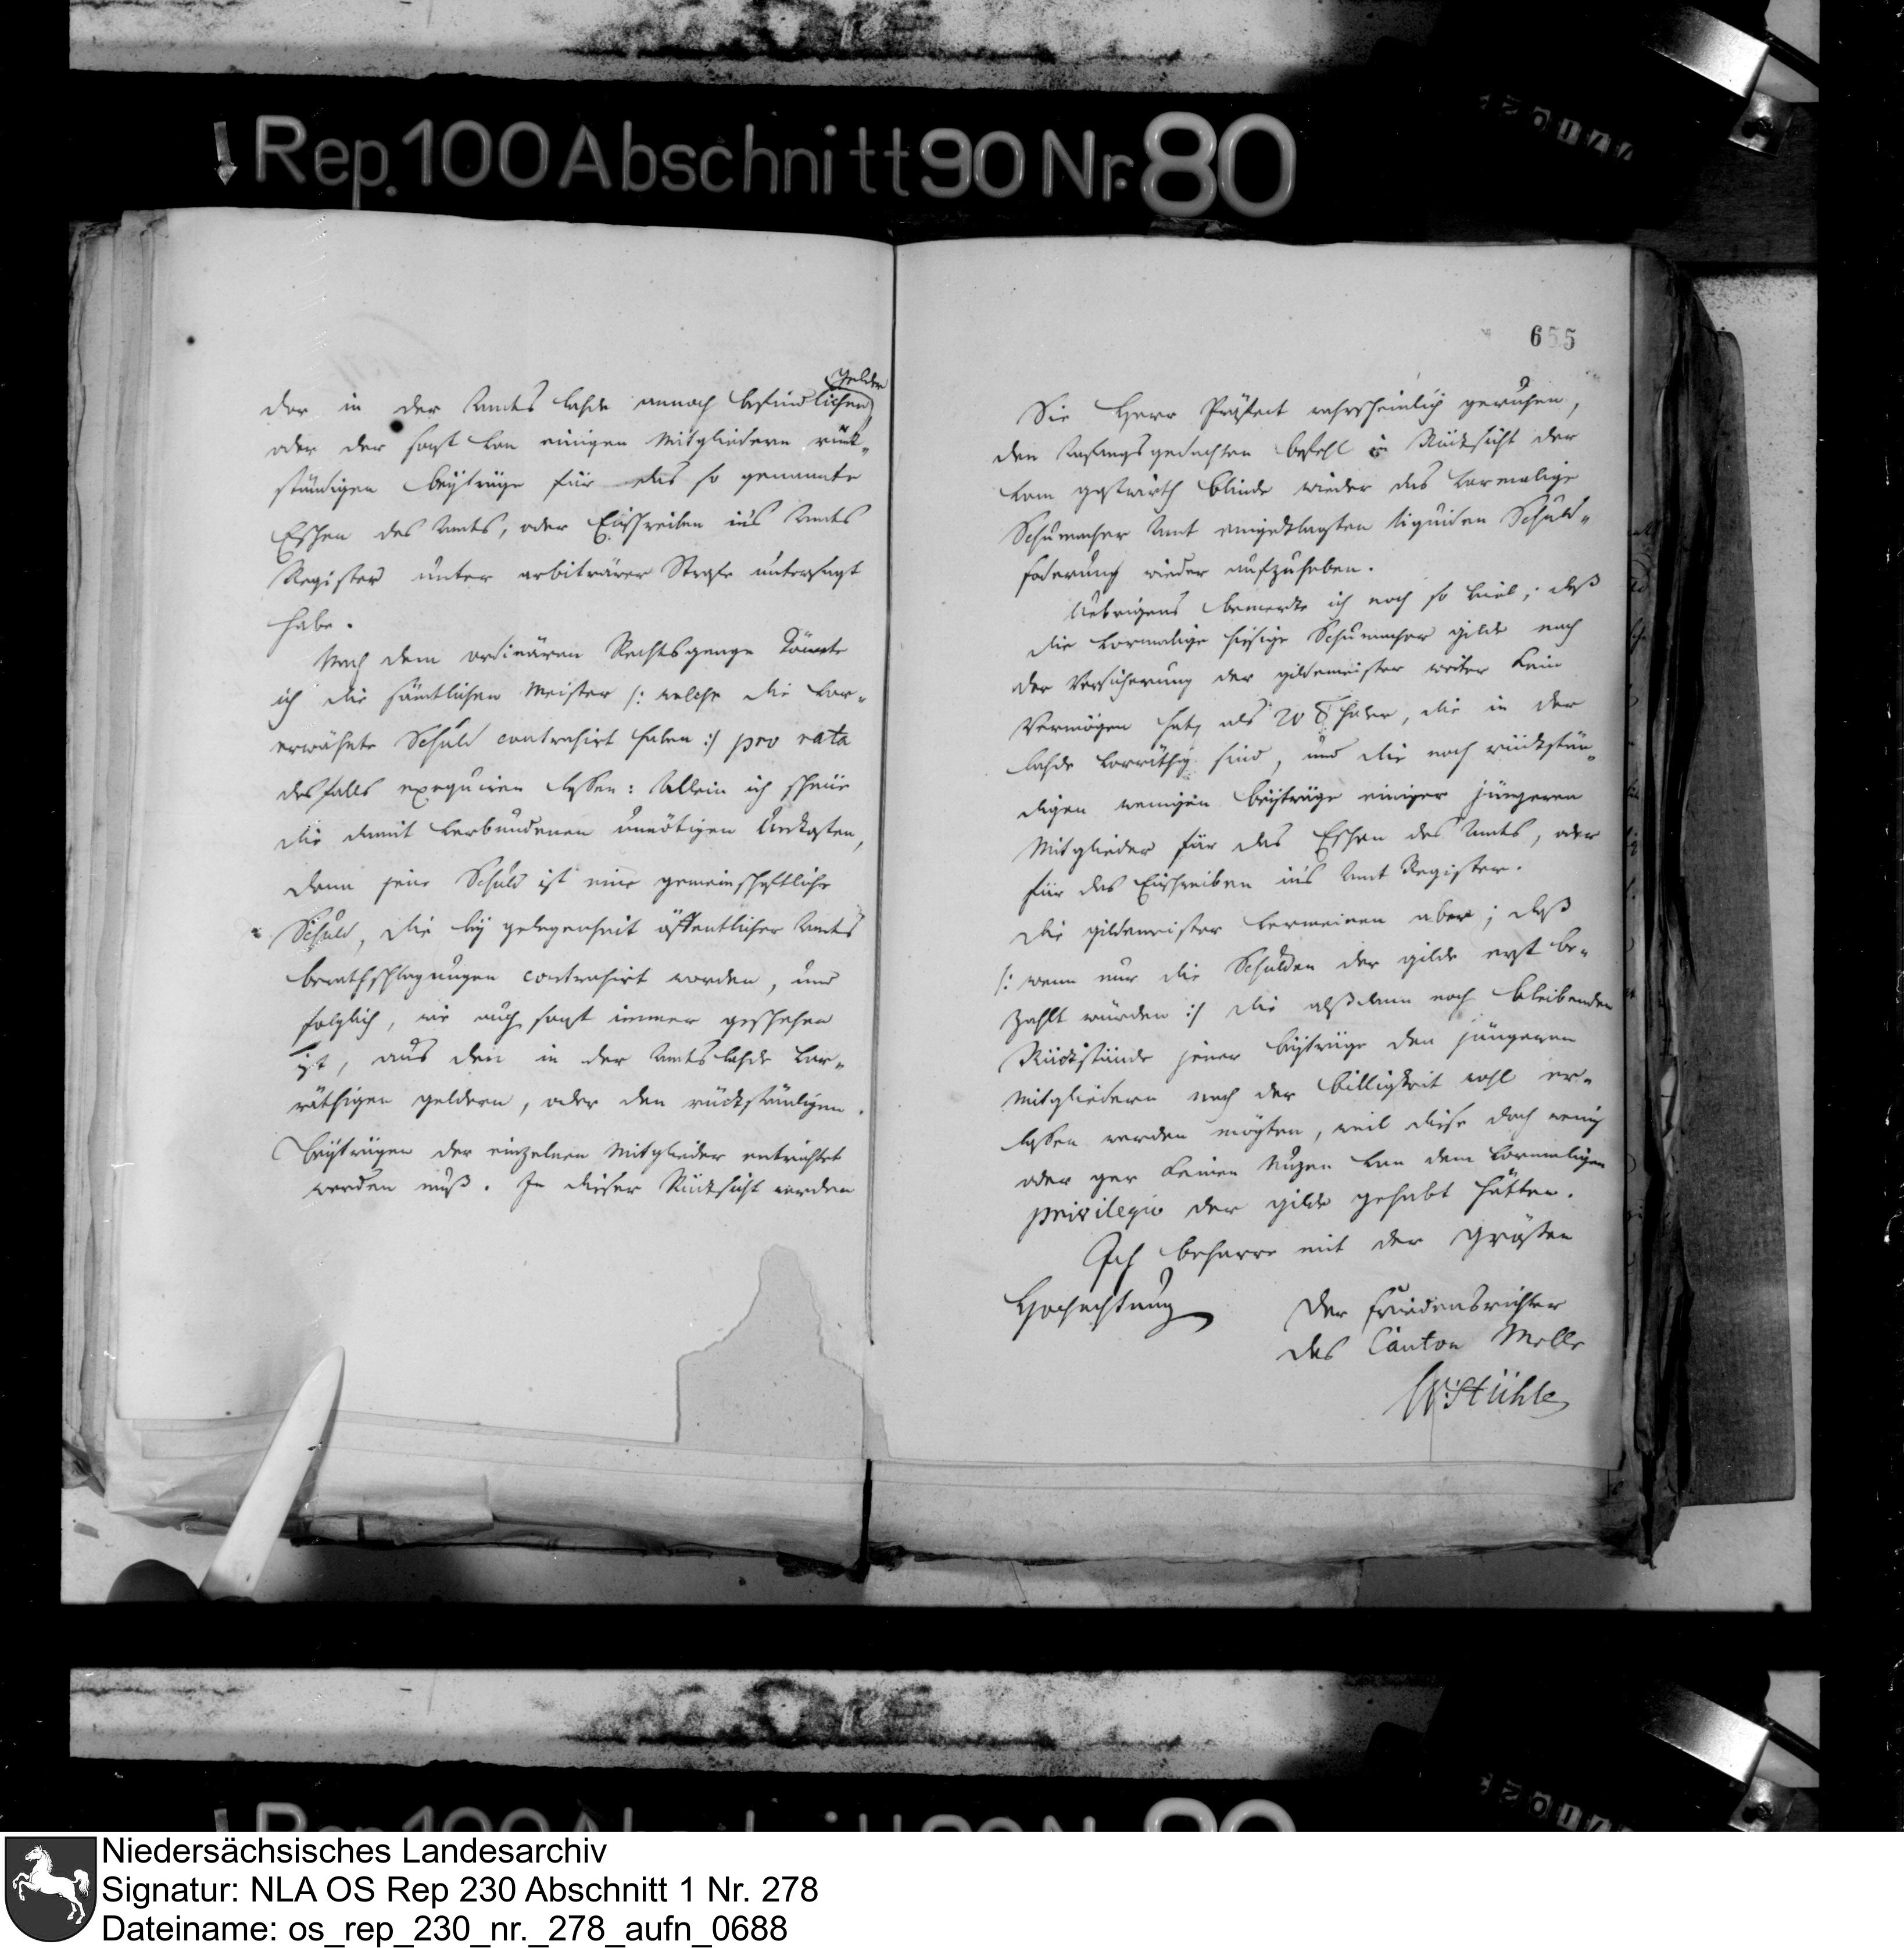 Rep. 100 Abschnitt 90 Nr. 80
655
Gelder
der in der Amts lahde annoch befindlichen
oder der sonst von einigen Mitgliedern rük-
ständigen beyträge für das so genannte
Eschen des Amts, oder Einschreiben ins Amts
Register unter arbiträrer Strafe untersagt
habe.
Nach dem ordinären Rechtsgange könnte
ich die sämtlichen Meister /: welche die vor-
erwähnte Schuld contrahirt haben :/ pro rata
desfalls exequiren lassen: Allein ich scheue
die damit verbundenen unnötigen Unkosten,
denn jene Schuld ist eine gemeinschaftliche
Schuld, die bey gelegenheit öffentlicher Amts
berathschlagungen contrahirt worden, und
folglich, wie auch sonst immer geschehen
ist, aus den in der Amtslahde vor-
räthigen geldern, oder den rückständigen
beyträgen der einzelnen Mitglieder entrichtet
werden muß. In dieser Rücksicht werden
Sie Herr Präfect wahrscheinlich geruhen,
den Anfangs gedachten befehl in Rücksicht der
vom gastwirth blinde wieder das vormalige
Schumacher Amt eingeklagten liquiden Schuld-
foderung wieder aufzuheben.
Uebrigens bemerke ich noch so viel; daß
die vormalige hiesige Schumacher gilde nach
der Versicherung der gildemeister weiter kein
Vermögen hat, als 20 Thaler, die in der
lahde vorräthig sind, und die noch rückstän-
digen wenigen beyträge einiger jüngeren
Mitglieder für das Eschen des Amts, oder
für das Einschreiben ins Amt Register.
Die gildemeister vermeinen aber; daß
/: wenn nur die Schulden der gilde erst be-
zahlt würden :/ die alßdann noch bleibenden
Rückstände jener beyträge den jüngeren
Mitgliedern nach der billigkeit wohl er-
lassen werden mögten, weil diese doch wenig
oder gar keinen Nuzen von dem vormaligen
privilegio der gilde gehabt hätten.
Ich beharre mit der grösten
Hochachtung
Der Friedensrichter
des Canton Melle
W. Stühle
Niedersächsisches Landesarchiv
Signatur: NLA OS Rep 230 Abschnitt 1 Nr. 278
Dateiname: os_rep_230_nr._278_aufn_0688